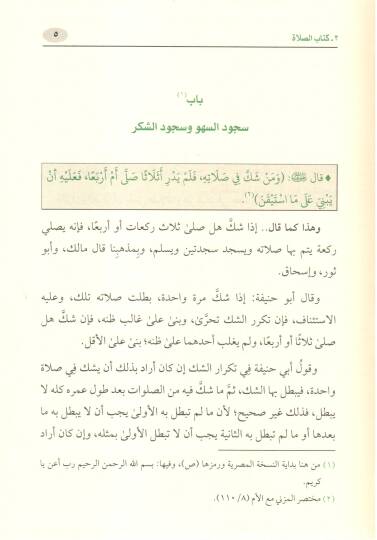 ٢ ـ كتاب الصلاة
٥
باب(١)
سجود السهو وسجود الشكر
♦ قال ﷺ: (وَمَنْ شَكَّ فِي صَلَاتِهِ، فَلَمْ يَدْرِ أَثَلَاثًا صَلَّى أَمْ أَرْبَعًا، فَعَلَيْهِ أَنْ
يَبْنِيَ عَلَى مَا اسْتَيْقَنَ)(٢).
وهذا كما قال.. إذا شكَّ هل صلىٰ ثلاث ركعات أو أربعًا، فإنه يصلي
ركعة يتم بها صلاته ويسجد سجدتين ويسلم، وبمذهبنا قال مالك، وأبو
ثور، وإسحاق.
وقال أبو حنيفة: إذا شكَّ مرة واحدة، بطلت صلاته تلك، وعليه
الاستئناف، فإن تكرر الشك تحرَّىٰ، وبنىٰ علىٰ غالب ظنه، فإن شكَّ هل
صلىٰ ثلاثًا أو أربعًا، ولم يغلب أحدهما علىٰ ظنه؛ بنىٰ علىٰ الأقل.
وقولُ أبي حنيفة في تكرار الشك إن كان أراد بذلك أن يشك في صلاة
واحدة، فيبطل بها الشك، ثمَّ ما شكَّ فيه من الصلوات بعد طول عمره كله لا
يبطل، فذلك غير صحيح؛ لأن ما لم تبطل به الأولىٰ يجب أن لا يبطل به ما
بعدها أو ما لم تبطل به الثانية يجب أن لا تبطل الأولىٰ بمثله، وإن كان أراد
(١) من هنا بداية النسخة المصرية ورمزها (ص)، وفيها: بسم الله الرحمن الرحيم رب أعن يا
كريم.
(٢) مختصر المزني مع الأم (٨/ ١١٠).